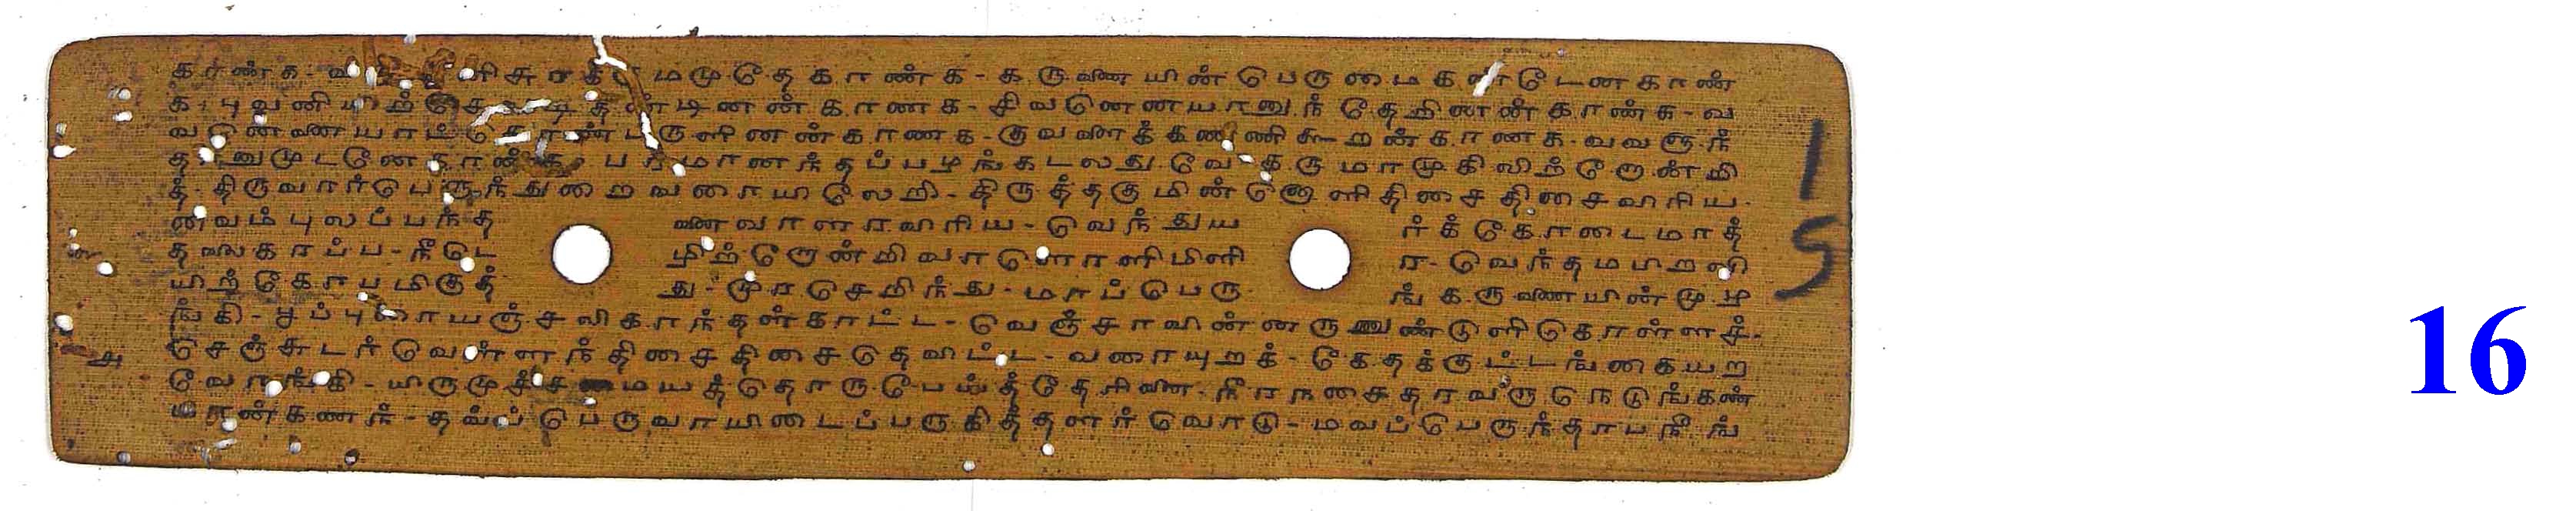 காண்க - சுரக்குமமுதே காண்க - கருணையின் பெருமை கண்டேன காண்
க - புவனியிற் சேவடி தீண்டினன் காணக - சிவனெனயானுந் தேறினன் காண்க - வ
வனெனையாட்கொண்டருளினன் காணக - குவளைக்கண்ணி கூறன் காணக - வவளுந்
தானுமுடனே காண்க - பரமானந்தப்பழங்கடலதுவே - கருமாமுகிலிற்றோன்றி
த் - திருவார்பெருந்துறைவரையிலேறி - திருத்தகுமின்னொளிதிசைதிசைவிரிய -
வைம்புலப்பந்த னைவாளரவிரிய - வெந்துய ர்க்கோடைமாத்
தலைகரப்ப - நீடெ ழிற்றோன்றிவாளொளிமிளி ர - வெந்தமபிறவி
யிற்கோபமிகுத் து - முரசெறிந்து - மாப்பெரு ங்கருணையின்முழ
ங்கி - பூப்புரையஞ்சலிகாந்தள்காட்ட - வெஞ்சாவின்னருணுண்டுளிகொள்ளச் -
செஞ்சுடர்வெள்ளந்திசைதிசைதெவிட்ட - வரையுறக் - கேதக்குட்டங்கையற
வோங்கி - யிருமுச்சமயத்தொருபேய்த்தேரினை - நீரநசைதரவருநெடுங்கண்
மான்கணந் - தவப்பெருவாயிடைப்பருகித்தளர்வொடு - மவப்பெருந்தாபநீங்
அ
15
16